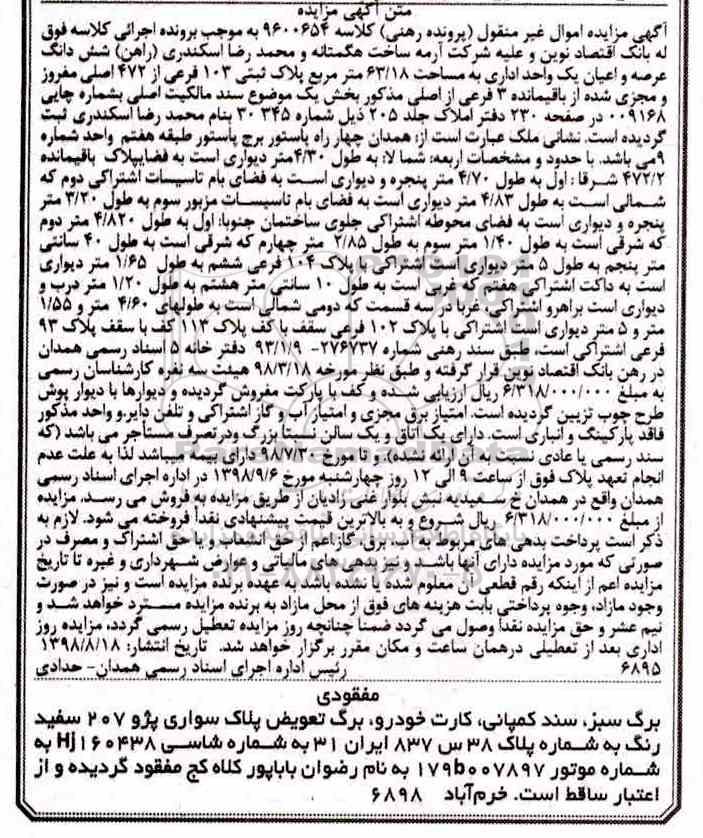 متن آگهی مزایده
آگهی مزایده اموال غیر منقول (پرونده رهنی) کلاسه ۹۶۰۰۶۵۴ به موجب پرونده اجرائی کلاسه فوق
له بانک اقتصاد نوین و علیه شرکت آرمه ساخت هگمتانه و محمد رضا اسکندری (راهن) شش دانگ
عرصه و اعیان یک واحد اداری به مساحت ۶۳/۱۸ متر مربع پلاک ثبتی ۱۰۳ فرعی از ۴۷۲ اصلی مفروز
و مجزی شده از باقیمانده ۳ فرعی از اصلی مذکور بخش یک موضوع سند مالکیت اصلی بشماره چاپی
۰۰۹۱۶۸ در صفحه ۲۳۰ دفتر املاک جلد ۲۰۵ ذیل شماره ۳۰۳۴۵ بنام محمد رضا اسکندری ثبت
گردیده است. نشانی ملک عبارت است از: همدان چهار راه پاستور برج پاستور طبقه هفتم واحد شماره
۹می باشد. با حدود و مشخصات اربعه: شما لا: به طول ۴/۳۰متر دیواری است به فضایپلاک باقیمانده
۴۷۲/۲ شرقا : اول به طول ۴/۷۰ متر پنجره و دیواری است به فضای بام تاسیسات اشتراکی دوم که
شمالی است به طول ۴/۸۳ متر دیواری است به فضای بام تاسیسات مزبور سوم به طول ۳/۲۰ متر
پنجره و دیواری است به فضای محوطه اشتراکی جلوی ساختمان جنوبا: اول به طول ۴/۸۲۰ متر دوم
که شرقی است به طول ۱/۴۰ متر سوم به طول ۲/۸۵ متر چهارم که شرقی است به طول ۴۰ سانتی
متر پنجم به طول ۵ متر دیواری است اشتراکی با پلاک ۱۰۴ فرعی ششم به طول ۱/۶۵ متر دیواری
است به داکت اشتراکی هفتم که غربی است به طول ۱۰ سانتی متر هشتم به طول ۱/۲۰ متر درب و
دیواری است براهرو اشتراکی. غربا در سه قسمت که دومی شمالی است به طولهای ۴/۶۰ متر و ۱/۵۵
متر و ۵ متر دیواری است اشتراکی با پلاک ۱۰۲ فرعی سقف با کف پلاک ۱۱۳ کف با سقف پلاک ۹۳
فرعی اشتراکی است، طبق سند رهنی شماره ۲۷۶۷۳۷- ۹۳/۱/۹ دفتر خانه ۵ اسناد رسمی همدان
در رهن بانک اقتصاد نوین قرار گرفته و طبق نظر مورخه ۹۸/۳/۱۸ هیئت سه نفره کارشناسان رسمی
به مبلغ ۶/۳۱۸/۰۰۰/۰۰۰ ریال ارزیابی شده و کف با پارکت مفروش گردیده و دیوارها با دیوار پوش
طرح چوب تزیین گردیده است. امتیاز برق مجزی و امتیاز آب و گاز اشتراکی و تلفن دایر.و واحد مذکور
فاقد پارکینگ و انباری است. دارای یک اتاق و یک سالن نسبتا بزرگ ودرتصرف مستأجر می باشد (که
سند رسمی یا عادی نسبت به آن ارائه نشده). و تا مورخ ۹۸/۷/۳۰ دارای بیمه میباشد لذا به علت عدم
انجام تعهد پلاک فوق از ساعت ۹ الی ۱۲ روز چهارشنبه مورخ ۱۳۹۸/۹/۶ در اداره اجرای اسناد رسمی
همدان واقع در همدان خ سعیدیه نبش بلوار غنی زادیان از طریق مزایده به فروش می رسد. مزایده
از مبلغ ۶/۳۱۸/۰۰۰/۰۰۰ ریال شروع و به بالاترین قیمت پیشنهادی نقدا فروخته می شود. لازم به
ذکر است پرداخت بدهی های مربوط به آب، برق، گاز اعم از حق انشعاب و یا حق اشتراک و مصرف در
صورتی که مورد مزایده دارای آنها باشد و نیز بدهی های مالیاتی و عوارض شهرداری و غیره تا تاریخ
مزایده اعم از اینکه رقم قطعی آن معلوم شده یا نشده باشد به عهده برنده مزایده است و نیز در صورت
وجود مازاد، وجوه پرداختی بابت هزینه های فوق از محل مازاد به برنده مزایده مسترد خواهد شد و
نیم عشر و حق مزایده نقدا وصول می گردد ضمنا چنانچه روز مزایده تعطیل رسمی گردد، مزایده روز
اداری بعد از تعطیلی درهمان ساعت و مکان مقرر برگزار خواهد شد. تاریخ انتشار: ۱۳۹۸/۸/۱۸
۶۸۹۵ رئیس اداره اجرای اسناد رسمی همدان- حدادی
مفقودی
برگ سبز، سند کمپانی، کارت خودرو، برگ تعویض پلاک سواری پژو ۲۰۷ سفید
رنگ به شماره پلاک ۳۸ س ۸۳۷ ایران ۳۱ به شماره شاسی Hj۱۶۰۴۳۸ به
شماره موتور ۱۷۹b۰۰۷۸۹۷ به نام رضوان باباپور کلاه کج مفقود گردیده و از
اعتبار ساقط است. خرم‌آباد ۶۸۹۸